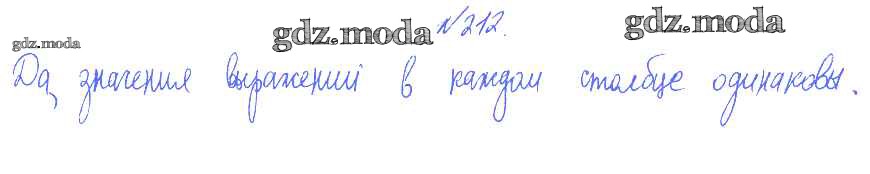 №212.
gdz.moda gdz.moda gdz.moda
Да, значения выражений в каждом столбце одинаковы.